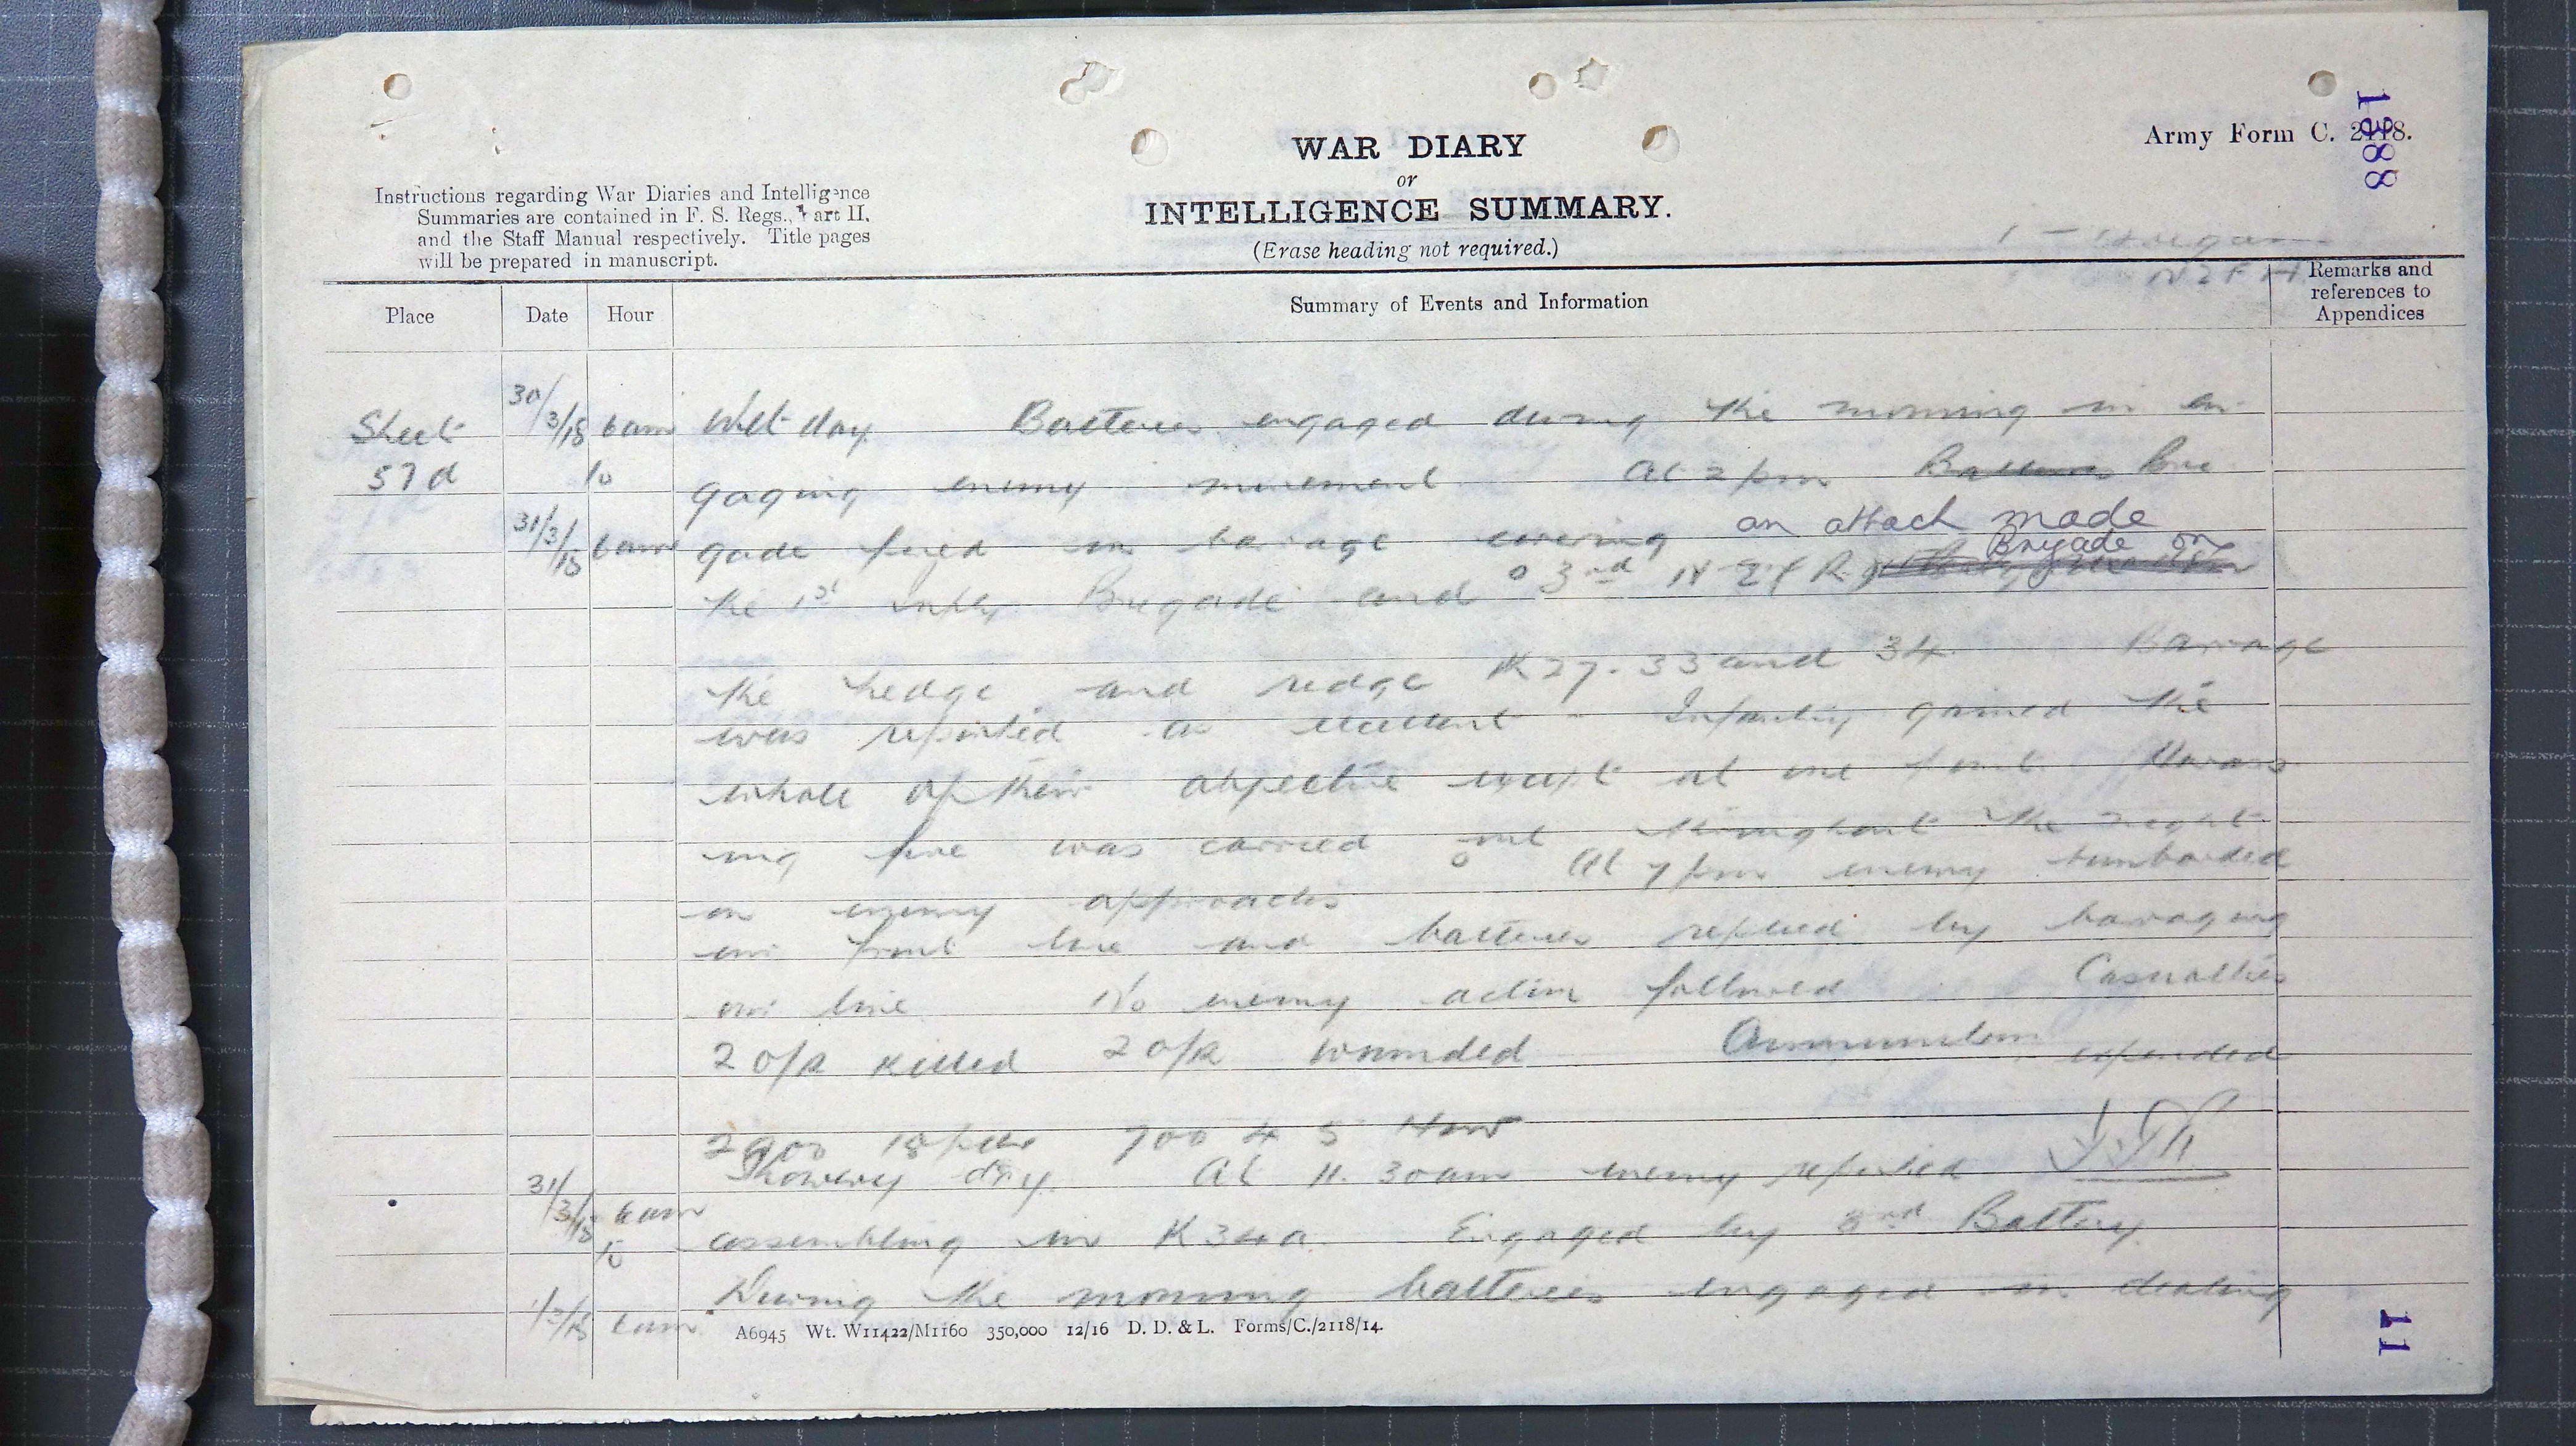 1388
Army Form C. 2118.
WAR DIARY
or
INTELLIGENCE SUMMARY.
(Erase heading not required.)
Instructions regarding War Diaries and Intelligence
Summaries are contained in F. S. Regs., Part II.
and the Staff Manual respectively. Title pages
will be prepared in manuscript.
Place
Date
Hour
Summary of Events and Information
Remarks and
references to
Appendices
Sheet 30/3/18 6am Wet day Batteries engaged during the morning in en
57d to gaging enemy movement At 2 pm Batteries Bri
31/3/18 6am gade fired in barrage covering an attack made
Brigade on
the 1st Inf Brigade and 3rd N Z R
the hedge and ridge K27. 33 and 34 Barrage
was reported as excellent Infantry gained the
whole of their objective except at one point Harass
ing fire was carried out throughout the night
on enemy approaches At 7 pm enemy bombarded
our front line and batteries replied by baraging
our line No enemy action followed Casualties
2 o/R killed 2 o/R wounded Ammunition expended
2900 18 pdr 700 4 5 How
31/3/18 6am Showery day. At 11. 30 am enemy reported
to assembling in K34a. Engaged by 3rd Battery.
6am During the morning batteries engaged in dealing
A6945 Wt. W11422/M1160 350,000 12/16 D. D. & L. Forms/C./2118/14.
11